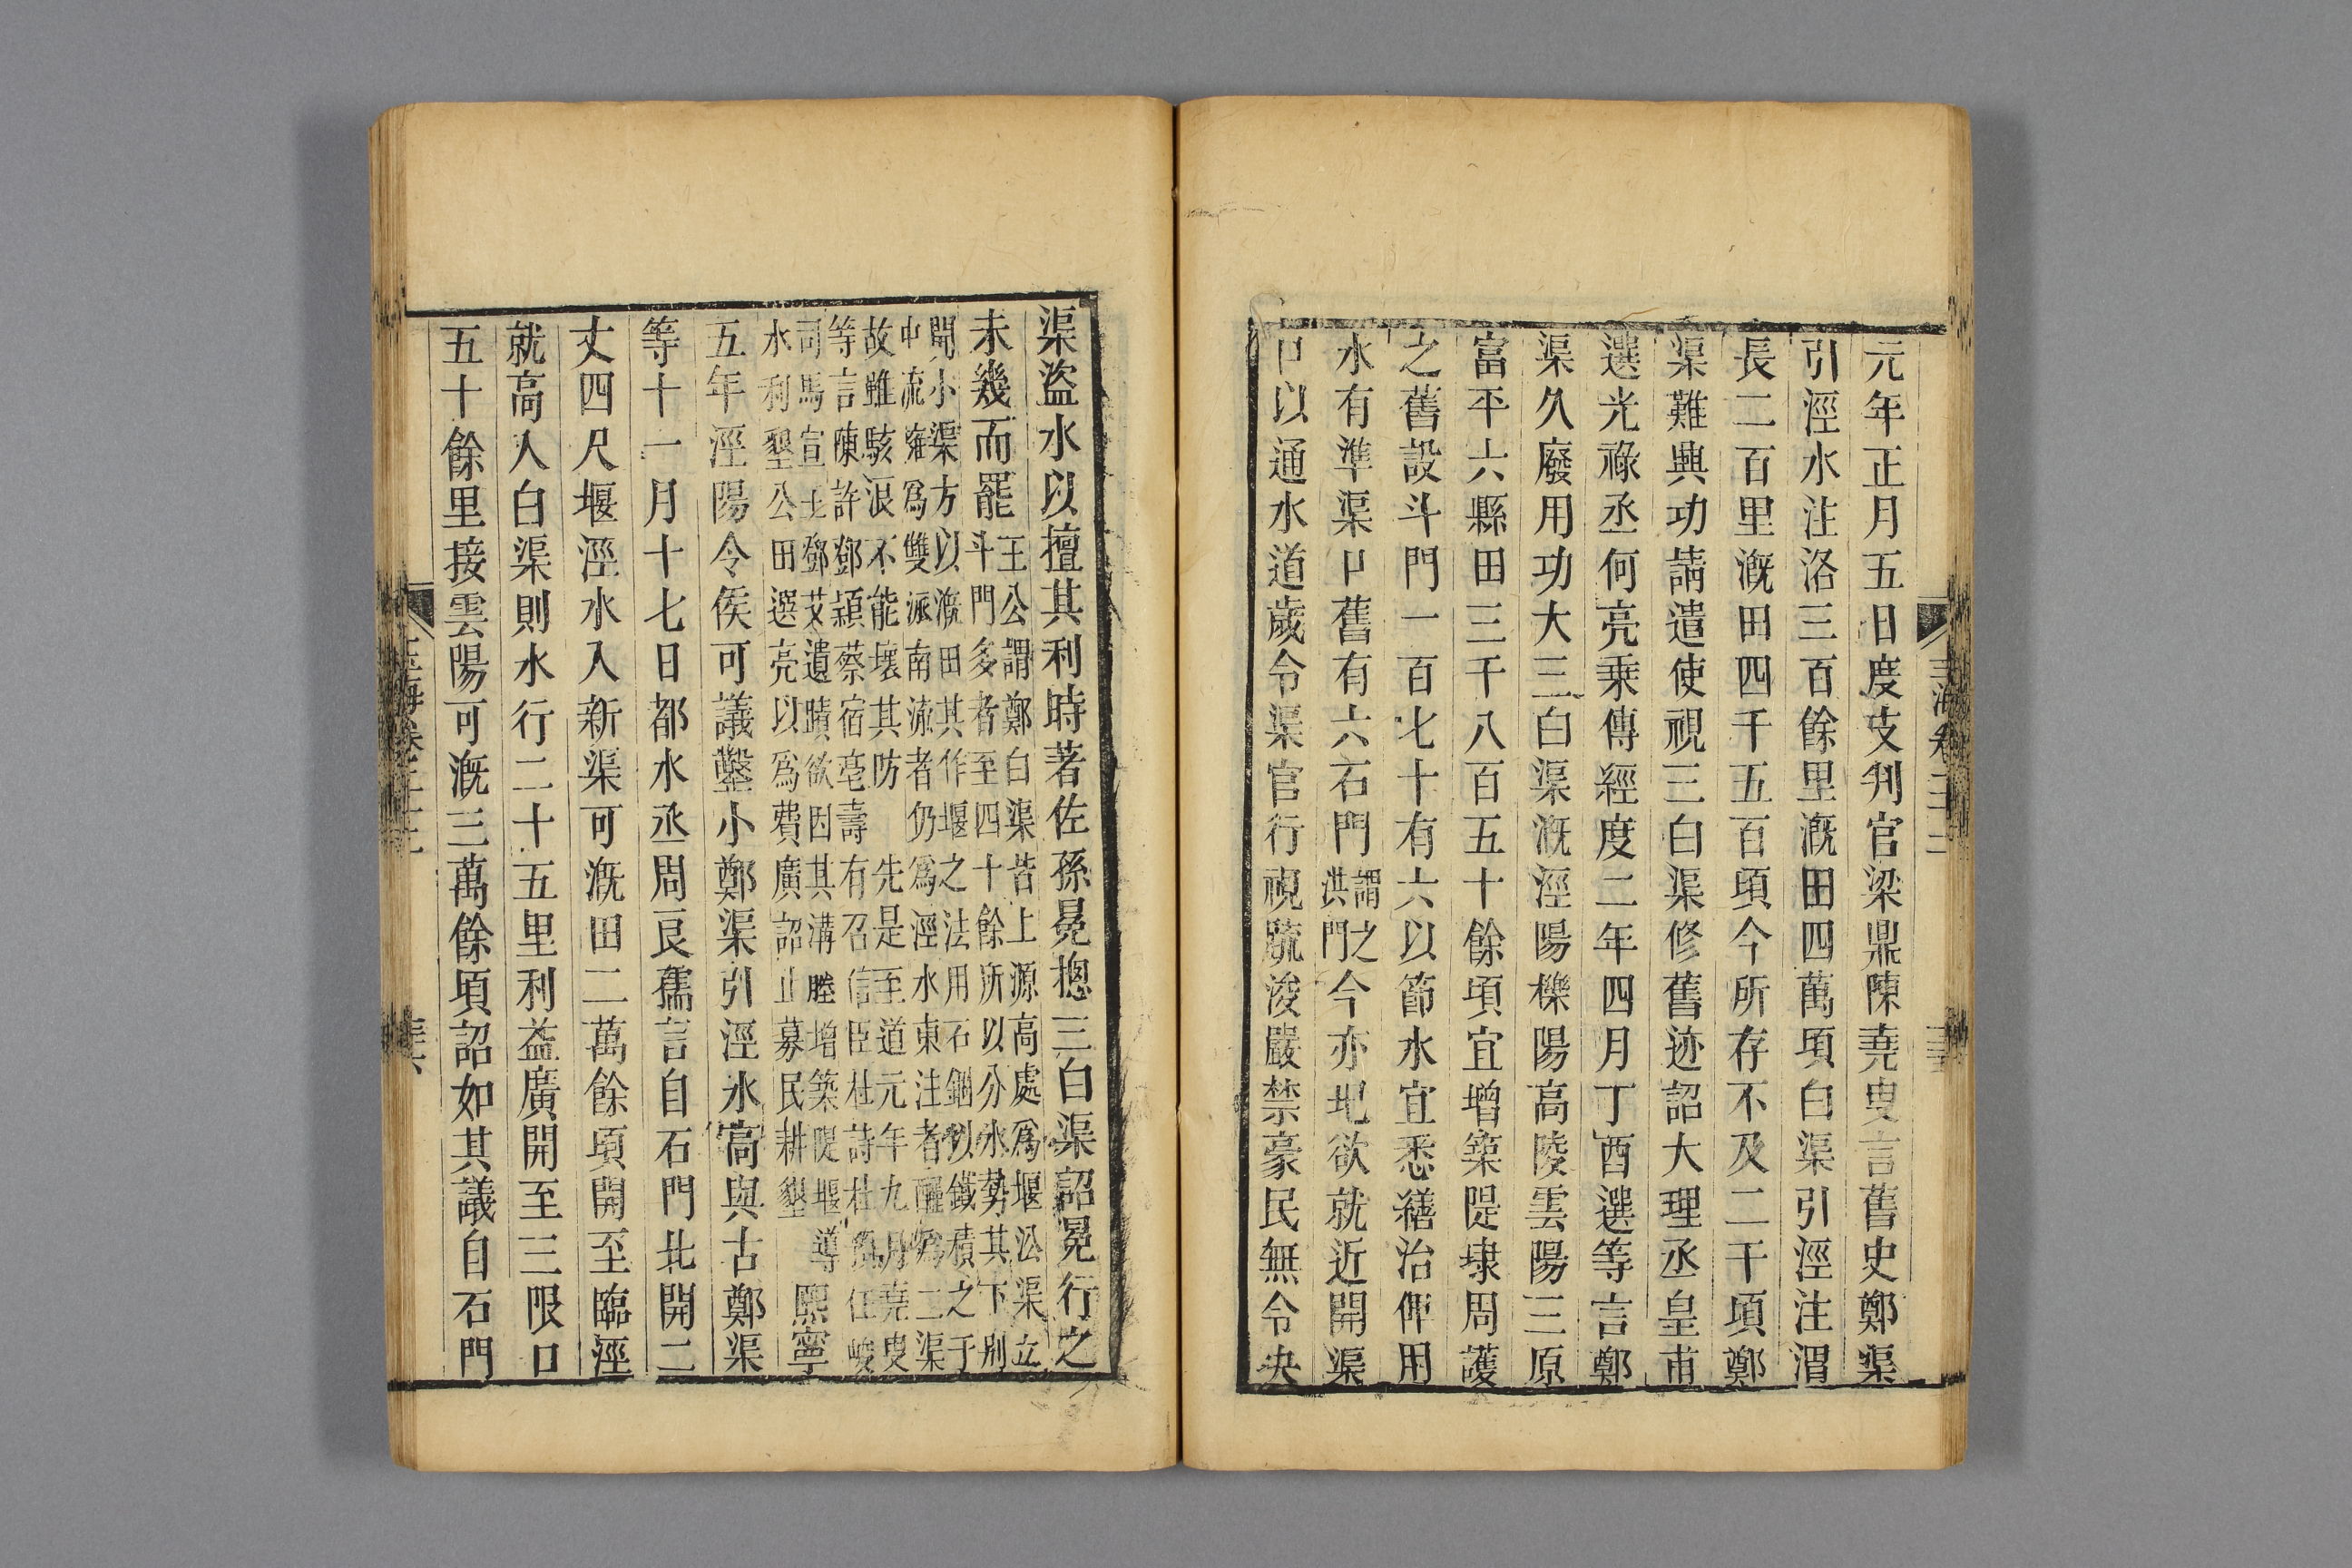 元年正月五日度支判官梁鼎陳堯叟言舊史鄭渠
引涇水注洛三百餘里漑田四萬頃白渠引涇注渭
長二百里漑田四千五百頃今所存不及二千頃鄭
渠難興功請遣使視三白渠修舊迹詔大理丞皇甫
選光祿丞何亮乗傳經度二年四月丁酉選等言鄭
渠久廢用功大三白渠漑涇陽櫟陽高陵雲陽三原
富平六縣田三千八百五十餘頃宜增築隄埭周護
之舊設斗門一百七十有六以節水宜悉繕治俾用
水有準渠口舊有六石門謂之洪門今亦圯欲就近開渠
口以通水道歲令渠官行視疏浚嚴禁豪民無令央
渠盜水以擅其利時著佐孫冕揔三白渠詔冕行之
未幾而罷王公謂鄭白渠昔上源高處爲堰沿渠立斗門多者至四十餘所以分水勢其下别
開小渠方以漑田其作堰之法用石錮以鐵積之于中流雍爲雙派南流者仍爲涇水東注者釃爲二渠
故雖駭浪不能壞其防 先是至道元年九月堯叟等言陳許鄧潁蔡宿亳壽有召信臣杜詩杜預任峻
司馬宣王鄧艾遺蹟欲因其溝塍增築隄堰導水利墾公田選亮以爲費廣詔止募民耕墾 熙寧
五年涇陽令侯可議鑿小鄭渠引涇水高與古鄭渠
等十一月十七日都水丞周良孺言自石門北開二
丈四尺堰涇水入新渠可漑田二萬餘頃開至臨涇
就高入白渠則水行二十五里利益廣開至三限口
五十餘里接雲陽可漑三萬餘頃詔如其議自石門